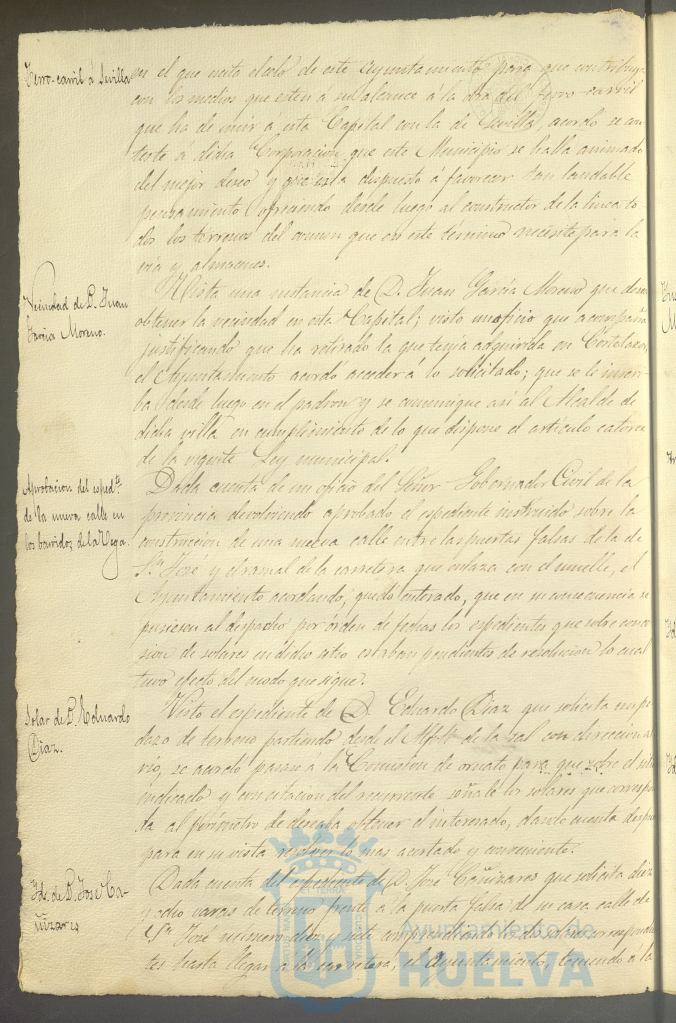 Ferro-carril á Sevilla
en el que excita el celo de este Ayuntamiento para que contribuya
con los medios que esten á su alcance á la obra del ferro-carril
que ha de unir á esta Capital con la de Sevilla, acordó se con
teste á dicha Corporacion que este Municipio se halla animado
del mejor deseo y que está dispuesto á favorecer tan laudable
pensamiento ofreciendo desde luego al constructor de la linea to
dos los terrenos del comun que en este término necesite para la
via y almacenes.
Vecindad de D. Juan
Garcia Moreno.
Vista una instancia de D. Juan Garcia Moreno que desea
obtener la vecindad en esta Capital; visto un oficio que acompaña
justificando que ha retirado la que tenia adquirida en Cortelazor,
el Ayuntamiento acordó acceder á lo solicitado; que se le inscri
ba desde luego en el padron y se comunique asi al Alcalde de
dicha villa en cumplimiento de lo que dispone el artículo catorce
de la vigente Ley municipal.
Aprobacion del espedte.
de la nueva calle en
los barridos de la Vega.
Dada cuenta de un oficio del Señor Gobernador Civil de la
provincia devolviendo aprobado el espediente instruido sobre la
construccion de una nueva calle entre las puertas falsas de la de
Sn. José y el ramal de la carretera que enlaza con el muelle, el
Ayuntamiento acordando, quedó enterado, que en su consecuencia se
pusiesen al despacho por órden de fechas los espedientes que sobre conce
sion de solares en dicho sitio estaban pendientes de resolucion lo cual
tuvo efecto del modo que sigue.
Solar de D. Eduardo
Diaz.
Visto el espediente de D. Eduardo Diaz que solicita un pe
dazo de terreno partiendo desde el de la sal con direccion al
rio, se acordó pasase á la Comision de ornato para que sobre el sitio
indicado y con citacion del recurrente señale los solares que correspon
da al perímetro de deseaba obtener el interesado, dando cuenta despues
para en su vista resolver lo mas acertado y conveniente.
Id. de D. José Ca-
ñizares
Dada cuenta del espediente de D. José Cañizares que solicita diez
y ocho varas de terreno frente á la puerta falsa de su casa calle de
Sn. José número diez y siete con los solares correspondien
tes hasta llegar á la carretera, el Ayuntamiento, teniendo á la
Ayuntamiento de
HUELVA